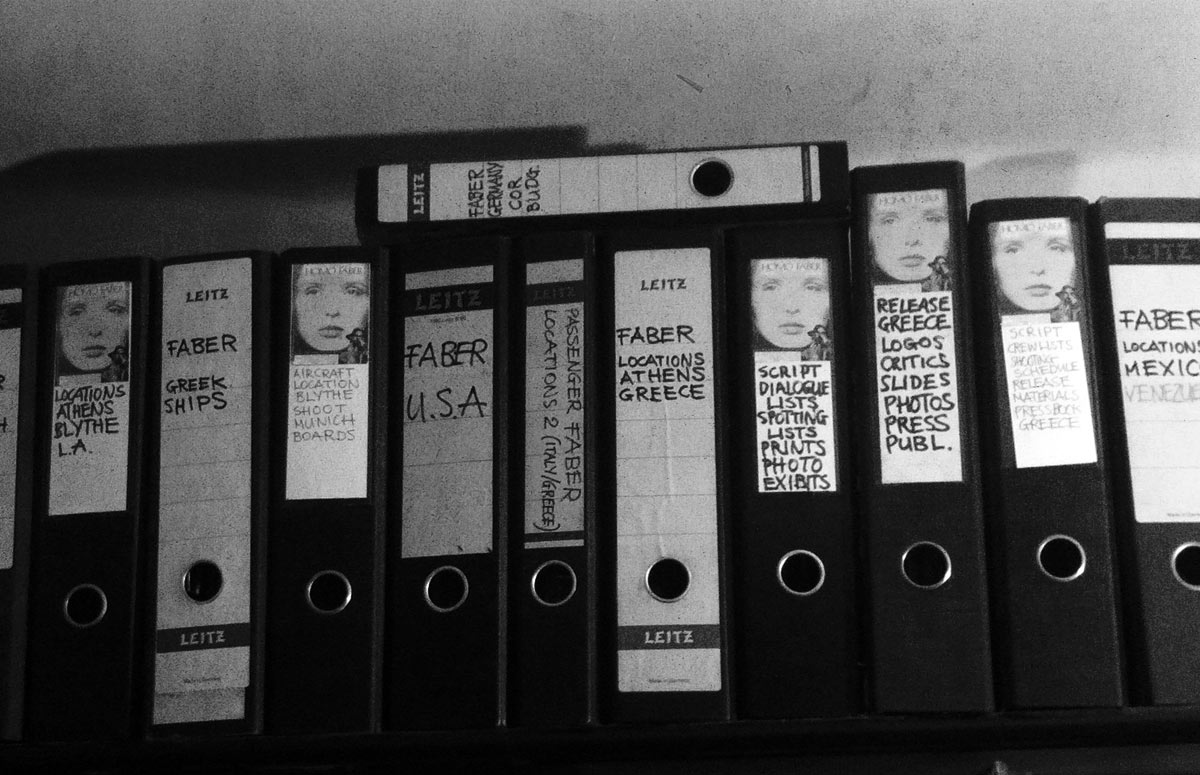 LEITZ
FABER
GERMANY
COR
BUDG.
HOMO FABER
LOCATIONS
ATHENS
BLYTHE
L.A.
LEITZ
FABER
GREEK
SHIPS
LEITZ
HOMO FABER
AIRCRAFT
LOCATION
BLYTHE
SHOOT
MUNICH
BOARDS
LEITZ
FABER
U.S.A
LEITZ
PASSENGER FABER
LOCATIONS 2 (ITALY/GREECE)
LEITZ
FABER
LOCATIONS
ATHENS
GREECE
LEITZ
HOMO FABER
SCRIPT
DIALOGUE
LISTS
SPOTTING
LISTS
PRINTS
PHOTO
EXIBITS
HOMO FABER
RELEASE
GREECE
LOGOS
CRITICS
SLIDES
PHOTOS
PRESS
PUBL.
HOMO FABER
SCRIPT
CREW LISTS
SHOOTING
SCHEDULE
RELEASE
MATERIALS
PRESSBOOK
GREECE
LEITZ
FABER
LOCATIONS
MEXIC
VENEZU